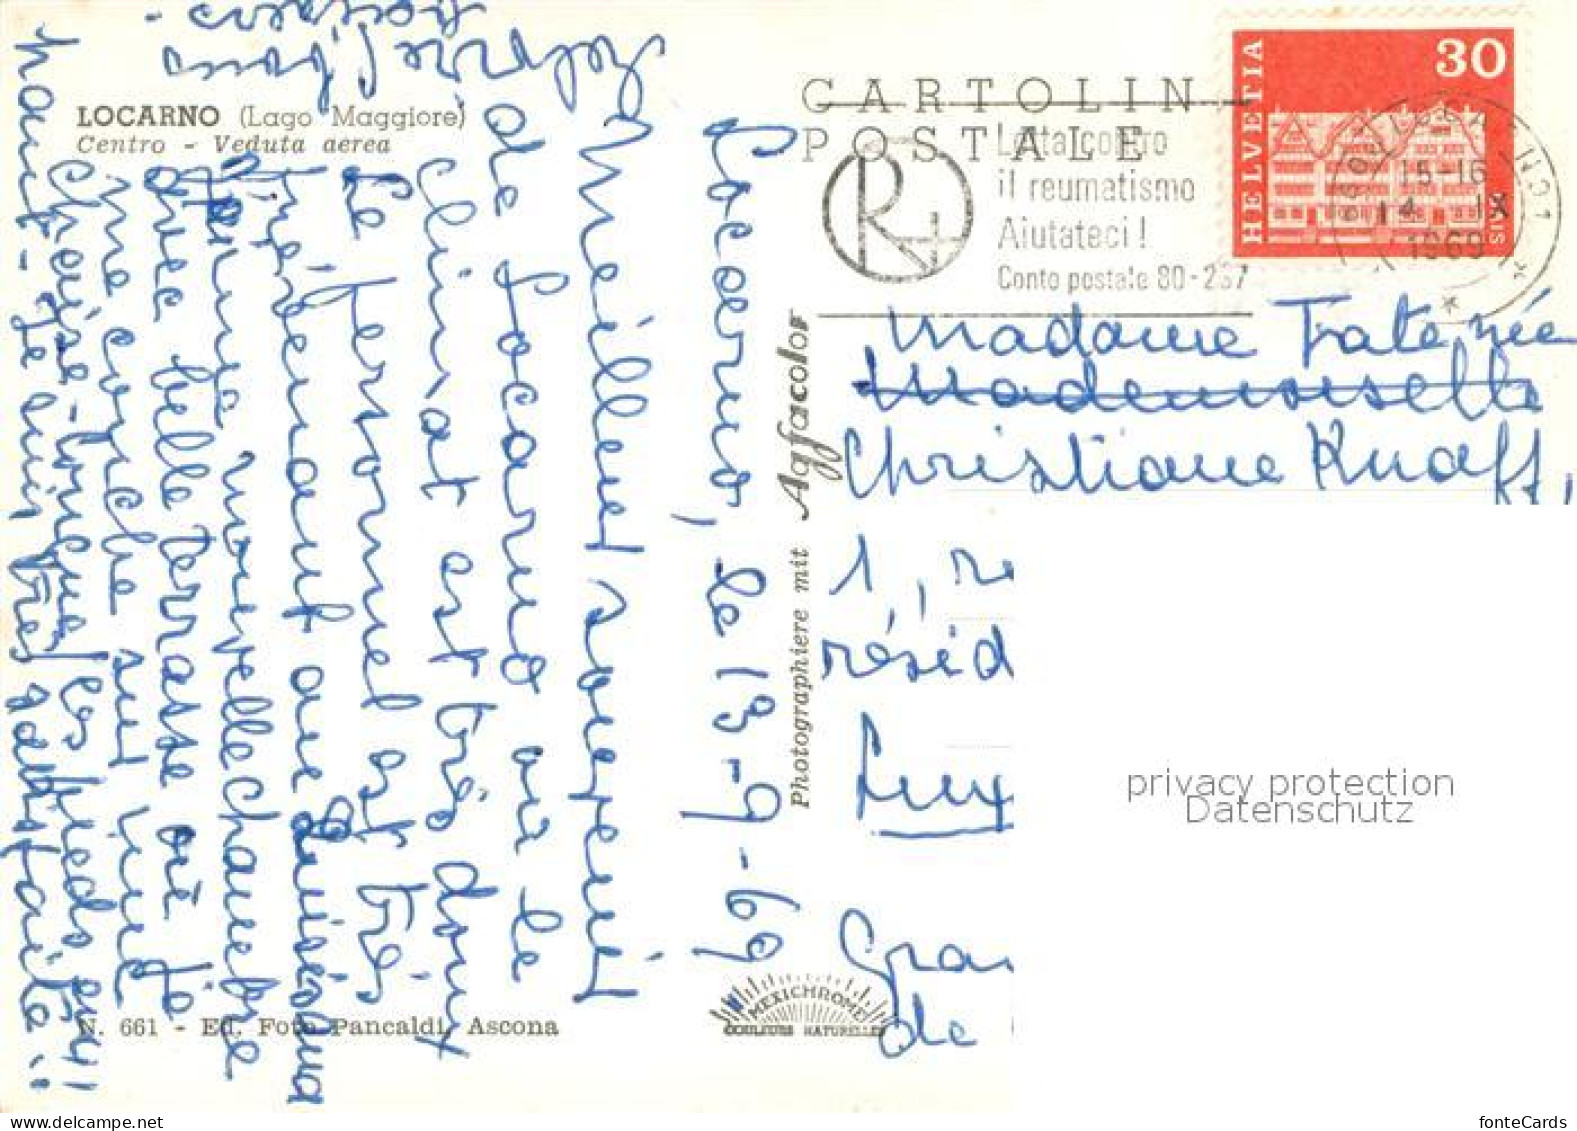 LOCARNO (Lago Maggiore)
Centro - Veduta aerea
CARTOLIN
POSTALE
R+
Lotta contro
il reumatismo
Aiutateci!
Conto postale 80-237
HELVETIA
30
GAIS
6600 LOCARNO 1
15-16
14. IX
1969
Locarno, le 13-9-69
Meilleur souvenir
de Locarno où le
climat est très doux
Le personnel est très
prévenant au
nouvelle chambre
avec belle terrasse où je
me couche sur une
chaise-longue, les pieds en
haut. Je suis très satisfaite!!
Madame Trate née
Mademoiselle
Christiane Knaff,
1,, r
résid
Lux
Gran
de
Photographiere mit Agfacolor
MEXICHROME
COULEURS NATURELLES
N. 661 - Ed. Foto Pancaldi, Ascona
privacy protection
Datenschutz
fonteCards